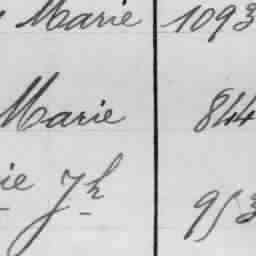 Marie 1093
Marie 844
ie Jh 953